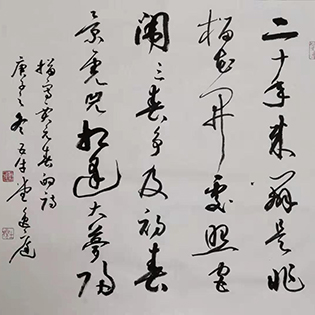 二十年来辨是非
榴花开处照宫
闱三春争及初春
景虎兕相逢大梦归
描写贾元春的诗
庚子之冬